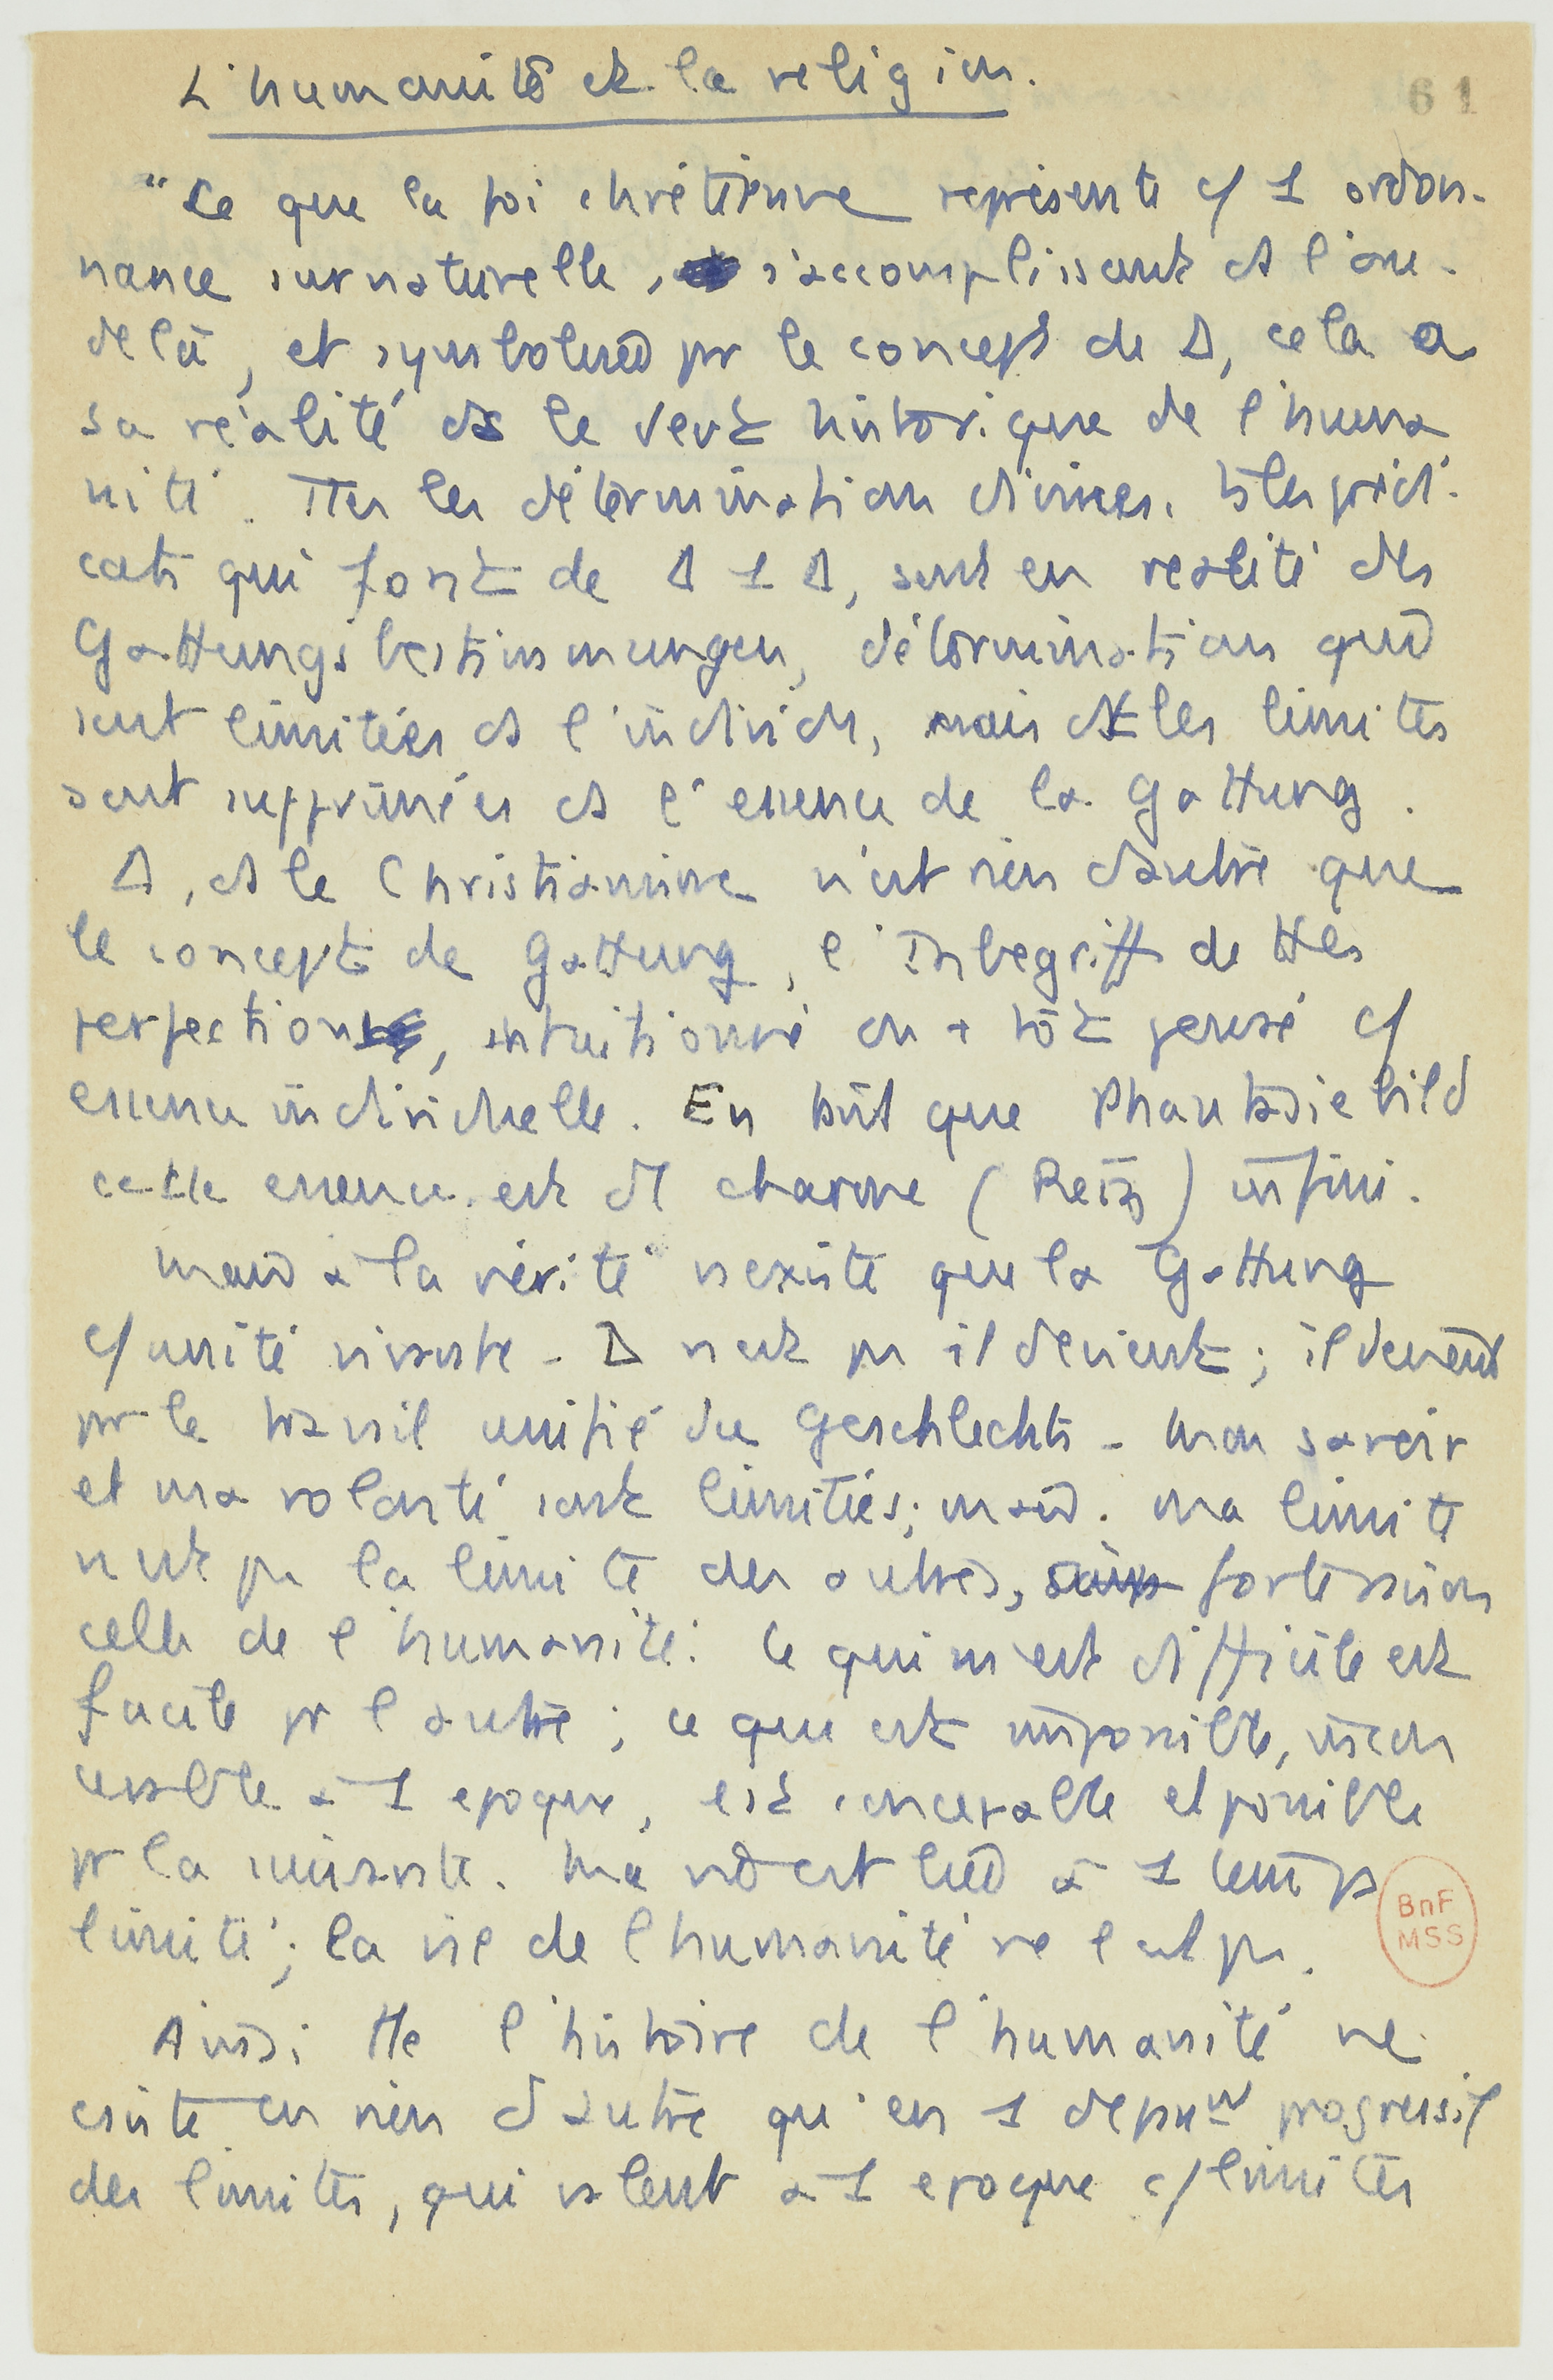 L'humanité et la religion.
61
"Ce que la foi chrétienne représente c/ 1 ordon-
nance surnaturelle, s'accomplissant ds l'au-
delà, et symbolisée pr le concept de Δ, cela a
sa réalité ds le devt historique de l'huma
nité. Ttes les déterminations divines, ts les prédi-
cats qui font de Δ 1 Δ, sont en réalité des
Gattungsbestimmungen, déterminations qui
sont limitées ds l'individu, mais dt les limites
sont supprimées ds l'essence de la Gattung.
Δ, ds le Christianisme n'est rien d'autre que
le concept de Gattung, l'Inbegriff de ttes
perfections, intuitionné ou + tôt pensé c/
essence individuelle. En tant que Phantasiebild
cette essence est d'1 charme (Reiz) infini.
mais à la vérité n'existe que la Gattung
c/ unité vivante - Δ n'est pas il devient; il devient
pr le travail unifié du Geschlechts - mon savoir
et ma volonté sont limités; mais ma limite
n'est pas la limite des autres, fortessions
celle de l'humanité: ce qui m'est difficile est
facile pr l'autre; ce qui est impossible, incon
cevable à 1 époque, est concevable et possible
pr la suivante. Ma vie est liée à 1 temps
limité; la vie de l'humanité ne l'est pas.
BnF
MSS
Ainsi tte l'histoire de l'humanité ne
csiste en rien d'autre qu'en 1 dépasst progressif
des limites, qui valent à 1 époque c/ limites